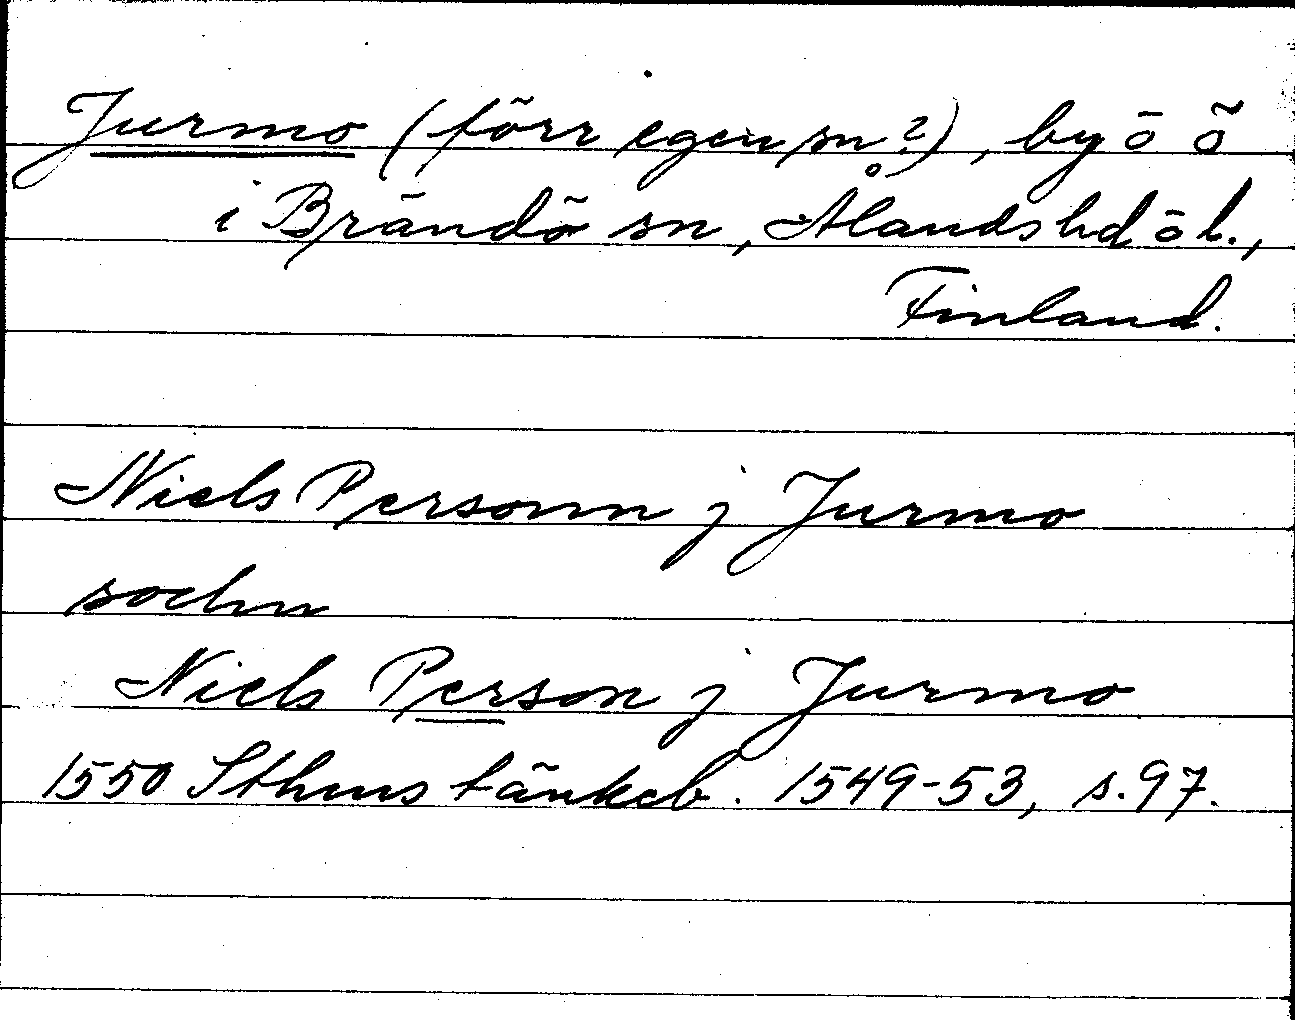 Jurmo (förr egen sn?), by o ö
i Brändö sn, Ålands hd o l.,
Finland.
Niels Personn j Jurmo
sochn
Niels Person j Jurmo
1550 Sthms tänkeb. 1549-53, s. 97.